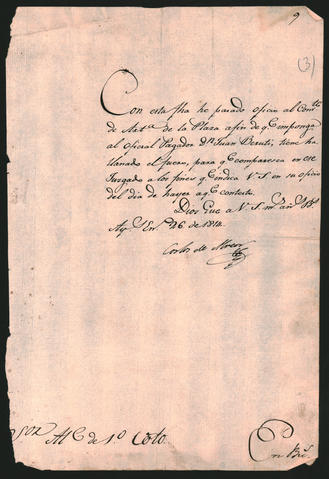 9
(3)
Con esta fha he pasado oficio al Comte
de Arta de la Plaza afin de qe imponga
al oficial Pagador Dn Juan
llanado el fuero, para qe comparesca en ese
Juzgado a los fines qe indica V S en su oficio
del dia de hayer a qe contesto.
Dios Gue a V. S. ms añs Bs
Ays En° 26 de 1814.
Carlos de Alvear
Al C de 1° Voto